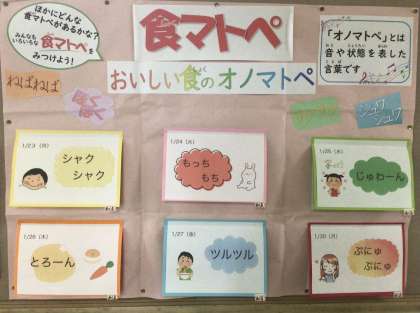 ほかにどんな
食マトペがあるかな?
みんなも
いろいろな
食マトペを
みつけよう!
食マトペ
おいしい食のオノマトペ
「オノマトペ」とは
音や状態を表した
言葉です
ねばねば
シュワ
シュワ
1/23 (月)
シャク
シャク
1/24 (火)
もっち
もち
1/25 (水)
じゅわーん
1/26 (木)
とろーん
1/27 (金)
ツルツル
1/30 (月)
ぷにゅ
ぷにゅ